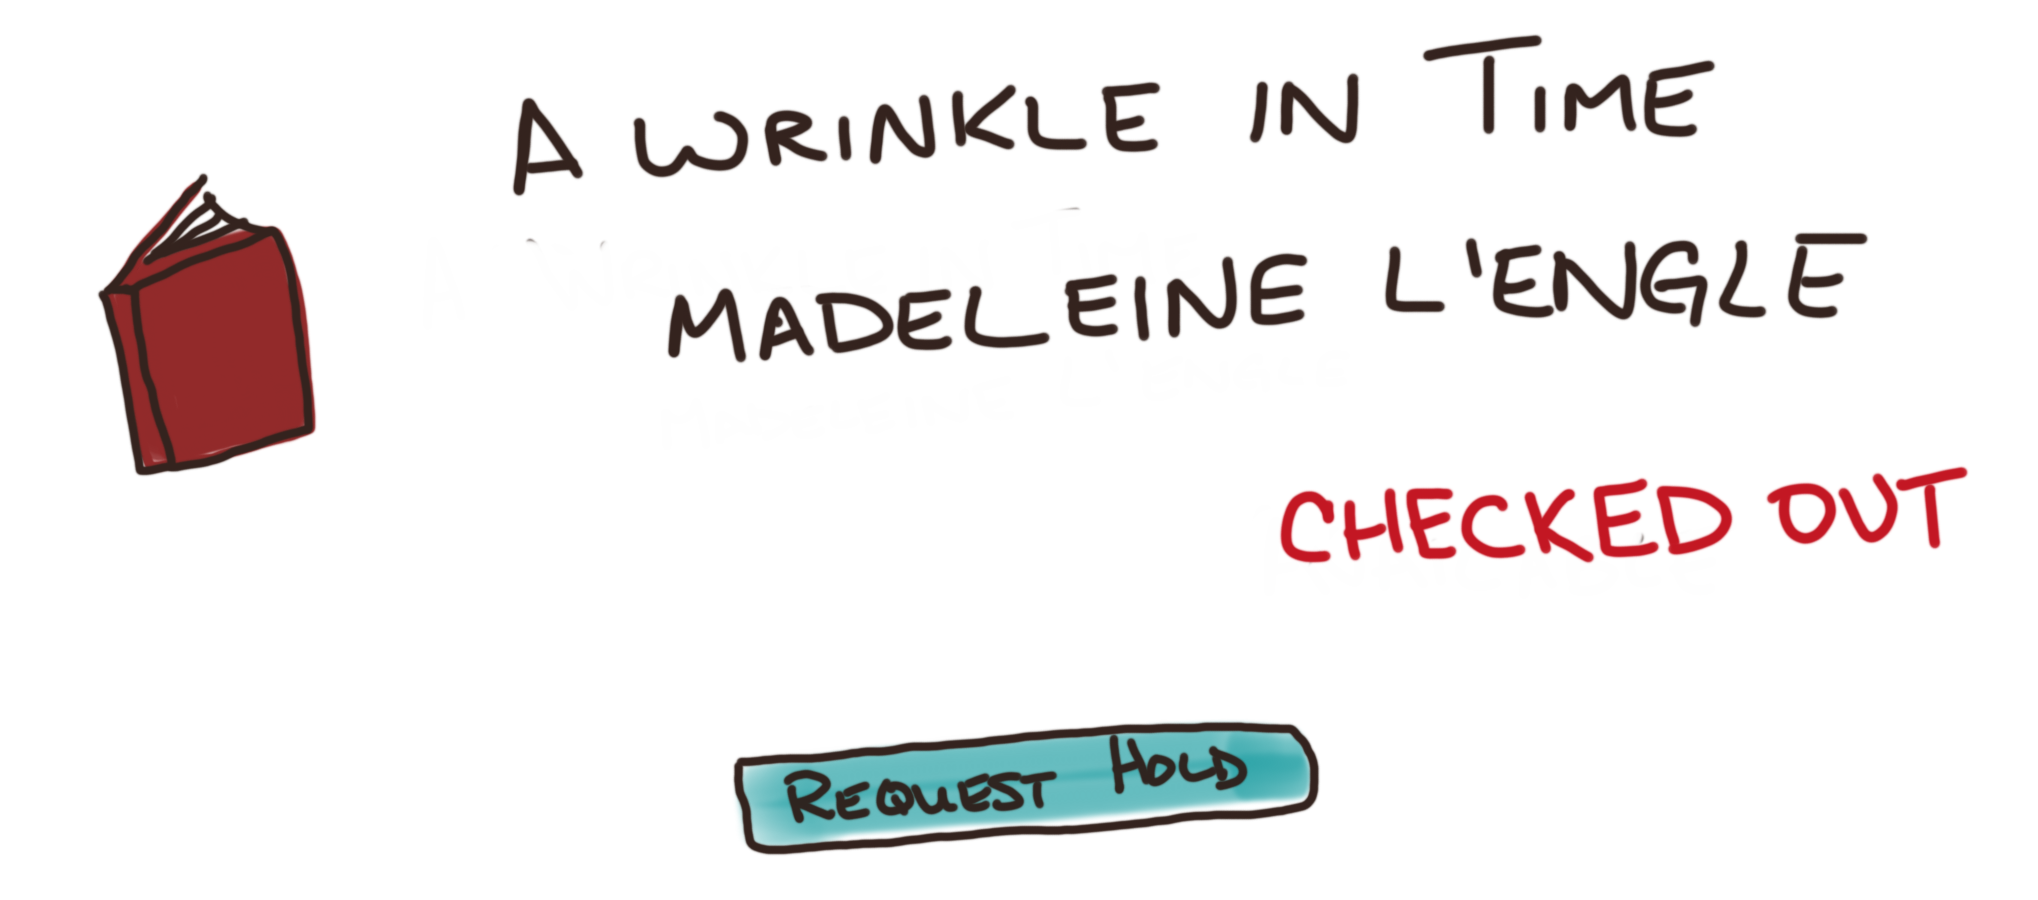 A WRINKLE IN TIME
MADELEINE L'ENGLE
CHECKED OUT
REQUEST HOLD